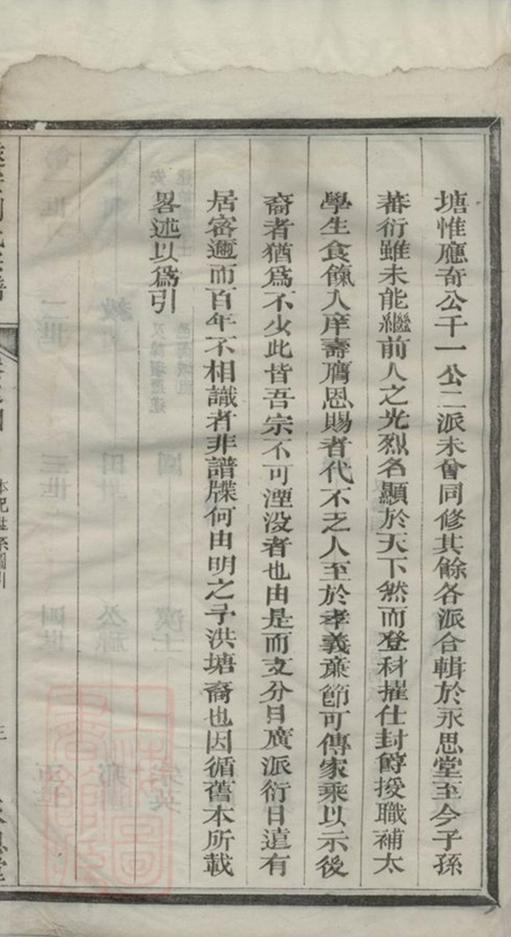 塘惟應奇公千一公二派未會同修其餘各派合輯於永思堂至今子孫
蕃衍雖未能繼前人之光烈名顯於天下然而登科擢仕封爵授職補太
學生食餼入庠壽膺恩賜者代不乏人至於孝義亷節可傳家乘以示後
裔者猶爲不少此皆吾宗不可湮没者也由是而支分日廣派衍日遠有
居宻邇而百年不相識者非譜牒何由明之予洪塘裔也因循舊本所載
畧述以爲引